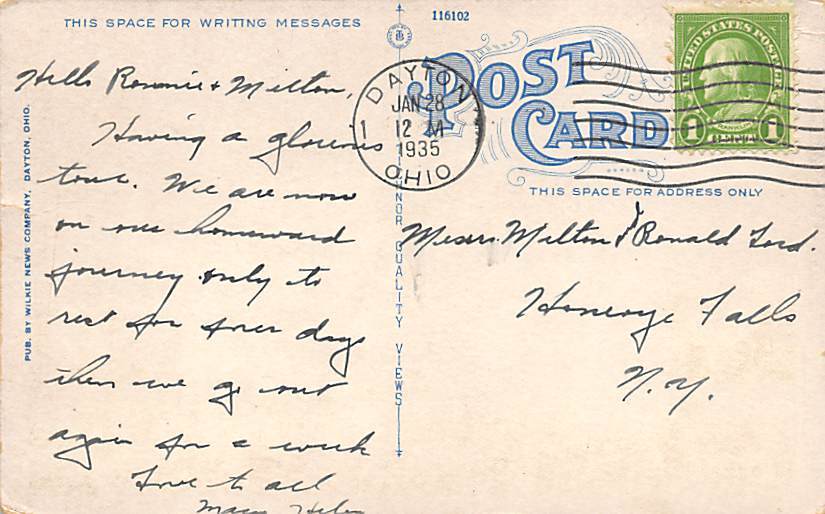 THIS SPACE FOR WRITING MESSAGES
116102
POST
CARD
UNITED STATES POSTAGE
FRANKLIN
1 1
DAYTON
JAN 28
12 M
1935
OHIO
1
THIS SPACE FOR ADDRESS ONLY
PUB. BY WILKIE NEWS COMPANY, DAYTON, OHIO.
QUALITY VIEWS
Hello Ronnie + Milton,
Having a glorious
tour. We are now
on our homeward
journey only to
rest for four days
then we go out
again for a week
Love to all
Mary Helen
Messrs. Milton & Ronald Ford.
Honeoye Falls
N.Y.